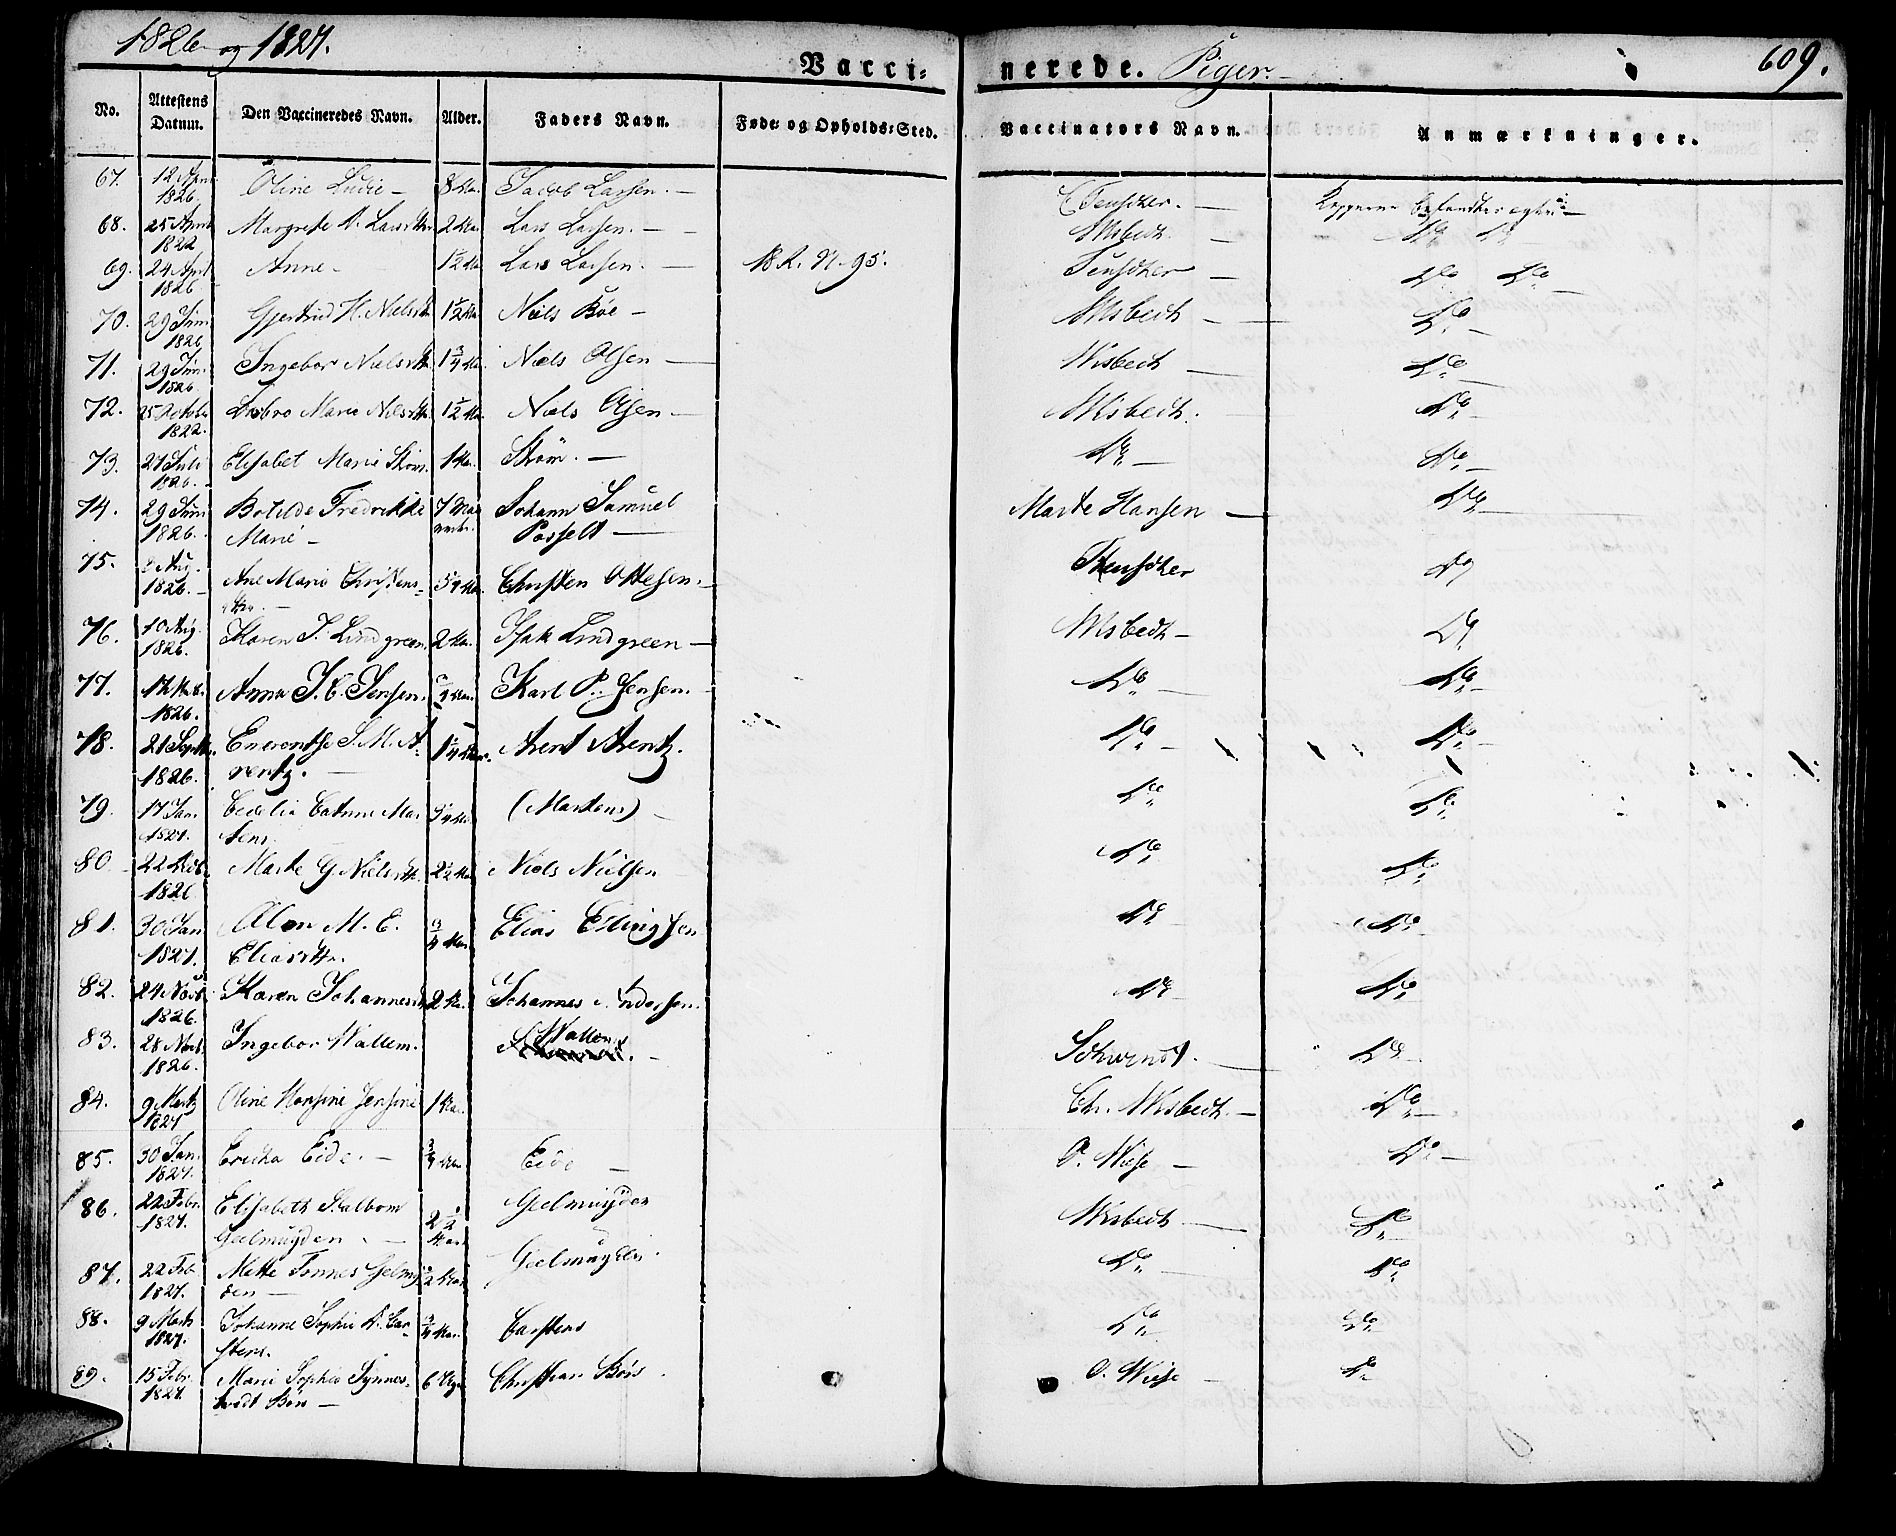 1826 og 1827.
Vaccinerede. Piger. 609.
No. Attestens Datum. Den Vaccineredes Navn. Alder. Faders Navn. Føde- og Opholds-Sted. Vaccinators Navn. Anmærkninger.
67. 12 April 1826 Oline Ludie 8 Aar. Jacob Larsen. Teuscher. Kopperne befandtes ægte
68. 25 April 1822 Margrete 2 Aar Lars Larsen. Wisbech. Do Do
69. 24 April 1826 Anne 1 1/2 Aar Lars Larsen. 18 R. N. 95. Teuscher Do Do
70. 29 Juni 1826 Gjertrud H. Nielsdtr 1 1/2 Aar Niels Böe Wisbech Do
71. 29 Juni 1826 Ingebor Nielsdtr 1 3/4 Aar Niels Olsen Wisbech Do
72. 25 Octob 1822. Marie Nielsdtr 1 1/2 Aar Niels Olsen Wisbech. Do
73. 27 Juli 1826. Elisabet Marie Strøm. 1 Aar. Strøm. Do Do
74. 29 Juni 1826. Botilde Fredrikke Marie 7 Johann Samuel Posselt Marte Hansen Do
75. 8 Aug. 1826. Ane Marie Christensdtr. 3/4 Aar. Christen Ottesen. Teuscher Do
76. 10 Aug. 1826. Karen J. Lindgreen 2 Aar. Isak Lindgreen Wisbech Do
77. 1826. Anna J. C. Jensen. 3/4 Aar. Karl P. Jensen. Do Do
78. 21 Septbr. 1826. S. M. Arentz. 1 1/4 Aar. Arent Arentz. Do Do
79. 17 Jan. 1827. Cecelia Catrine Martens 3/4 Aar (Martens) Do Do
80. 22 1826 Marte G Nielsdtr. 2 1/2 Aar Niels Nielsen Do Do
81. 30 Jan 1827. Alen M. E. Eliasdtr. 3/4 Aar. Elias Ellingsen Do Do
82. 24 Novb. 1826. Karen Johannesdtr 2 Aar. Johannes Andersen. Do Do
83. 28 Novb. 1826. Ingebor Wallem. Wallem. Schwendt. Do
84. 9 Martz 1827 Oline Hansine Jensine 1 Aar. Ch. Wisbech. Do
85. 30 Jan. 1827. Ericka Eide. 3/4 Aar Eide O. Wiese Do
86. 22 Febr. 1827. Elisabeth Dalbom Geelmuyden. 2 1/2 Aar Geelmuyden Wisbech Do
87. 22 Feb 1827. Mette Finnes Gelmyden Aar Geelmuyden. Do Do
88. 9 Marts 1827. Johanne Sophie D. Carstens. 3/4 Aar. Carstens Do Do
89. 15 Febr. 1827. Marie Sophie Tynnes- Börs 6 Uger Christian Börs. O. Wiese Do